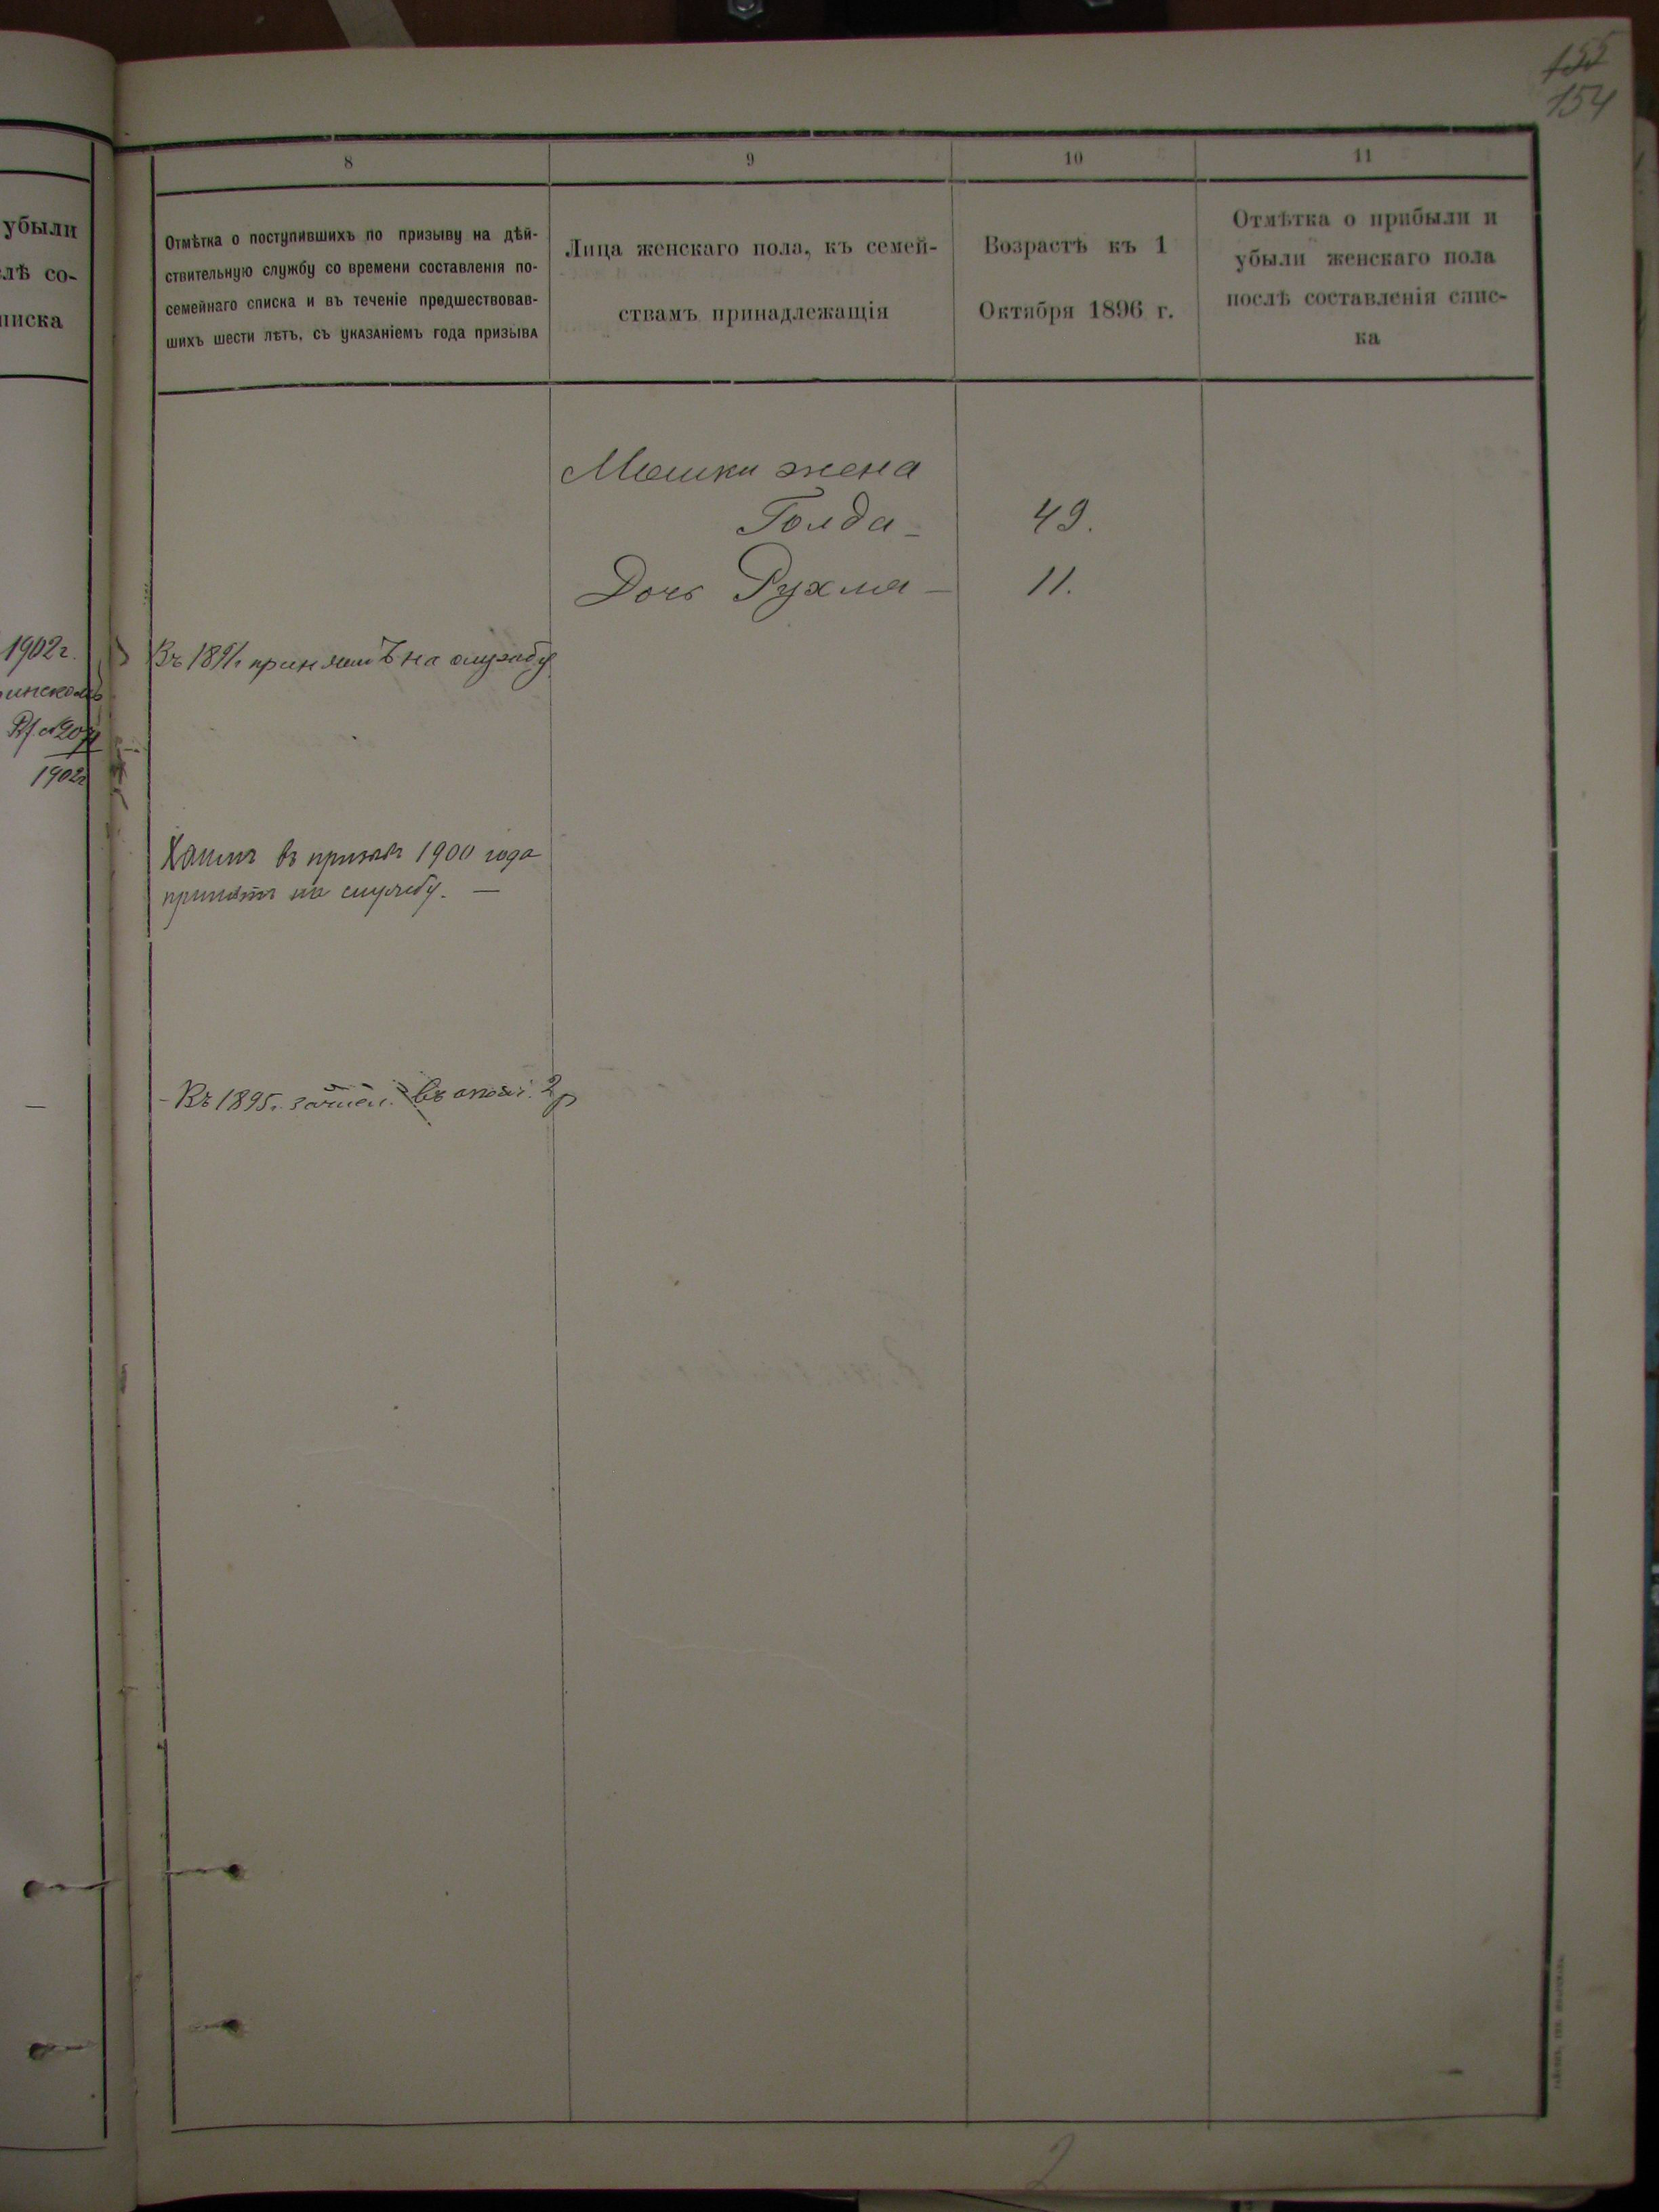 155
154
убыли
лѣ со-
писка
8
9
10
11
Отмѣтка о поступившихъ по призыву на дѣй-
ствительную службу со времени составленія по-
семейнаго списка и въ теченіе предшествовав-
шихъ шести лѣтъ, съ указаніемъ года призыва
Лица женскаго пола, къ семей-
ствамъ принадлежащія
Возрастъ къ 1
Октября 1896 г.
Отмѣтка о прибыли и
убыли женскаго пола
послѣ составленія спис-
ка
Мошки жена
Голда - 49.
Дочь Рухма - 11.
1902 г.
Въ 1891 г. принятъ на службу
1902 г
Хаимъ въ призывъ 1900 года
принятъ на службу. —
- Въ 1895 г. зачисл. въ опол. 2 р
2